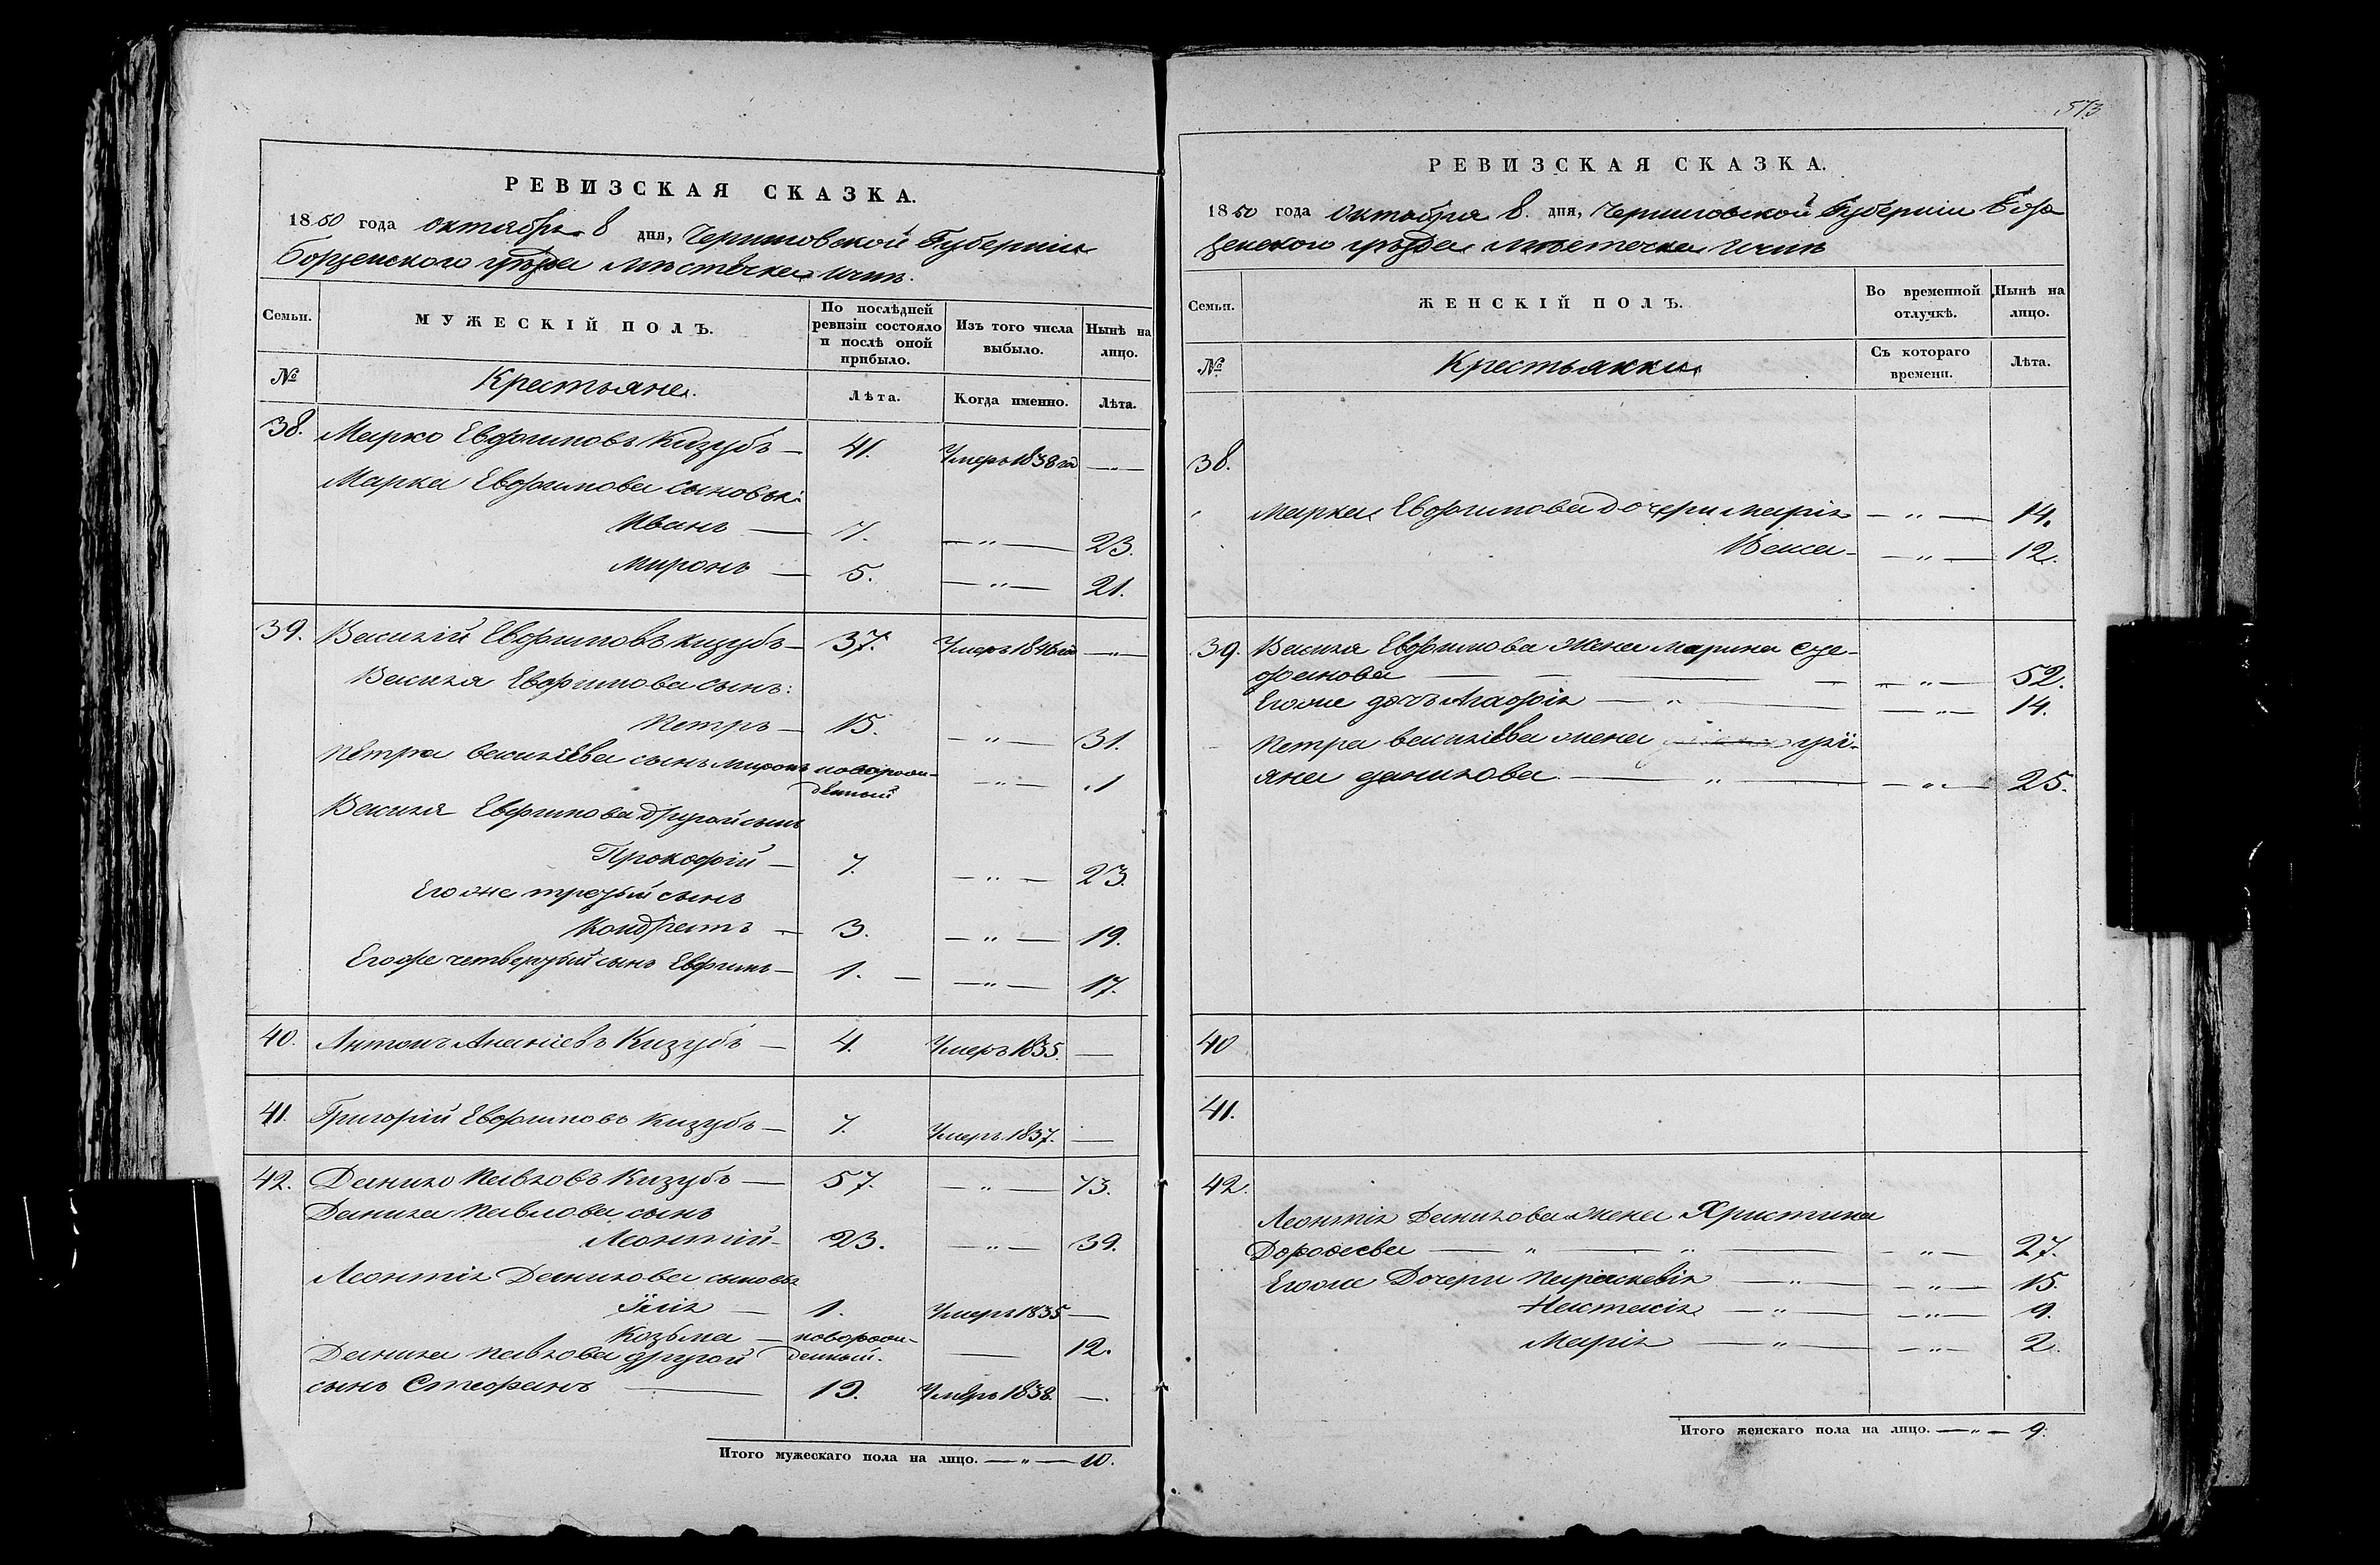 РЕВИЗСКАЯ СКАЗКА.
1850 года октября 8 дня, Черниговской Губерніи
Борзенского уѣзда мѣстечка Ични.
Семьи. МУЖЕСКІЙ ПОЛЪ. По послѣдней ревизіи состояло и послѣ оной прибыло. Изъ того числа выбыло. Нынѣ на лицо.
№ Крестьяне. Лѣта. Когда именно. Лѣта.
38. Марко Евфимовъ Кизубъ — 41. Умеръ 1838 го — „ —
Марка Евфимова сыновья:
Иванъ — 7. — „ — 23.
Миронъ — 5. — „ — 21.
39. Василій Евфимовъ Кизубъ — 37. Умеръ 1846 го — „ —
Василя Евфимова сынъ:
Петръ — 15. — „ — 31.
Петра Василіева сынъ Миронъ новорож-
денный — „ — 1
Василя Евфимова другой сынъ
Прокофій — 7. — „ — 23.
Его же третій сынъ
Кондратъ — 3. — „ — 19.
Его же четвертый сынъ Евфимъ — 1. — — „ — 17.
40. Антонъ Ананіевъ Кизубъ — 4. Умеръ 1835. —
41. Григорій Евфимовъ Кизубъ — 7. Умеръ 1837. —
42. Данило Павловъ Кизубъ — 57. — „ — 73.
Данила Павлова сынъ
Леонтій — 23. — „ — 39.
Леонтія Данилова сыновья
Илія — 1. Умеръ 1835 —
Козьма — новорож-
денный. — 12.
Данила Павлова другой
сынъ Стефанъ — 19. Умеръ 1838. —
Итого мужескаго пола на лицо. — „ — 10.
573
РЕВИЗСКАЯ СКАЗКА.
1850 года октября 8. дня, Черниговской Губерніи Бор-
зенского уѣзда мѣстечка Ични
Семьи. ЖЕНСКІЙ ПОЛЪ. Во временной отлучкѣ. Нынѣ на лицо.
№ Крестьянки. Съ котораго времени. Лѣта.
38.
Марка Евфимова дочери Марія — „ — 14.
— „ — 12.
39. Василя Евфимова жена Марина Сте-
фанова — — — — „ — 52.
Его же дочъ Агафія — „ — — „ — 14.
Петра Василіева жена улі-
яна Данилова — „ — — „ — 25.
40
41.
42.
Леонтія Данилова жена Христина
Дорофеева — „ — „ — — „ — 27.
Его же Дочери Параскевія — „ — — „ — 15.
Настасія — „ — — „ — 9.
Марія — „ — — „ — 2.
Итого женскаго пола на лицо. — „ — 9.